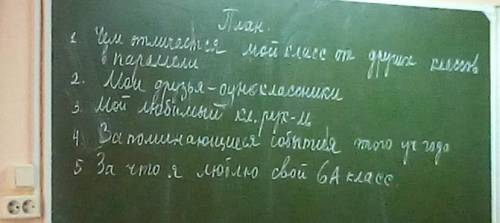 План.
1. Чем отличается мой класс от других классов
в параллели
2. Мои друзья-одноклассники
3. Мой любимый кл. рук-ль
4. Запоминающиеся события этого уч года
5. За что я люблю свой 6А класс.